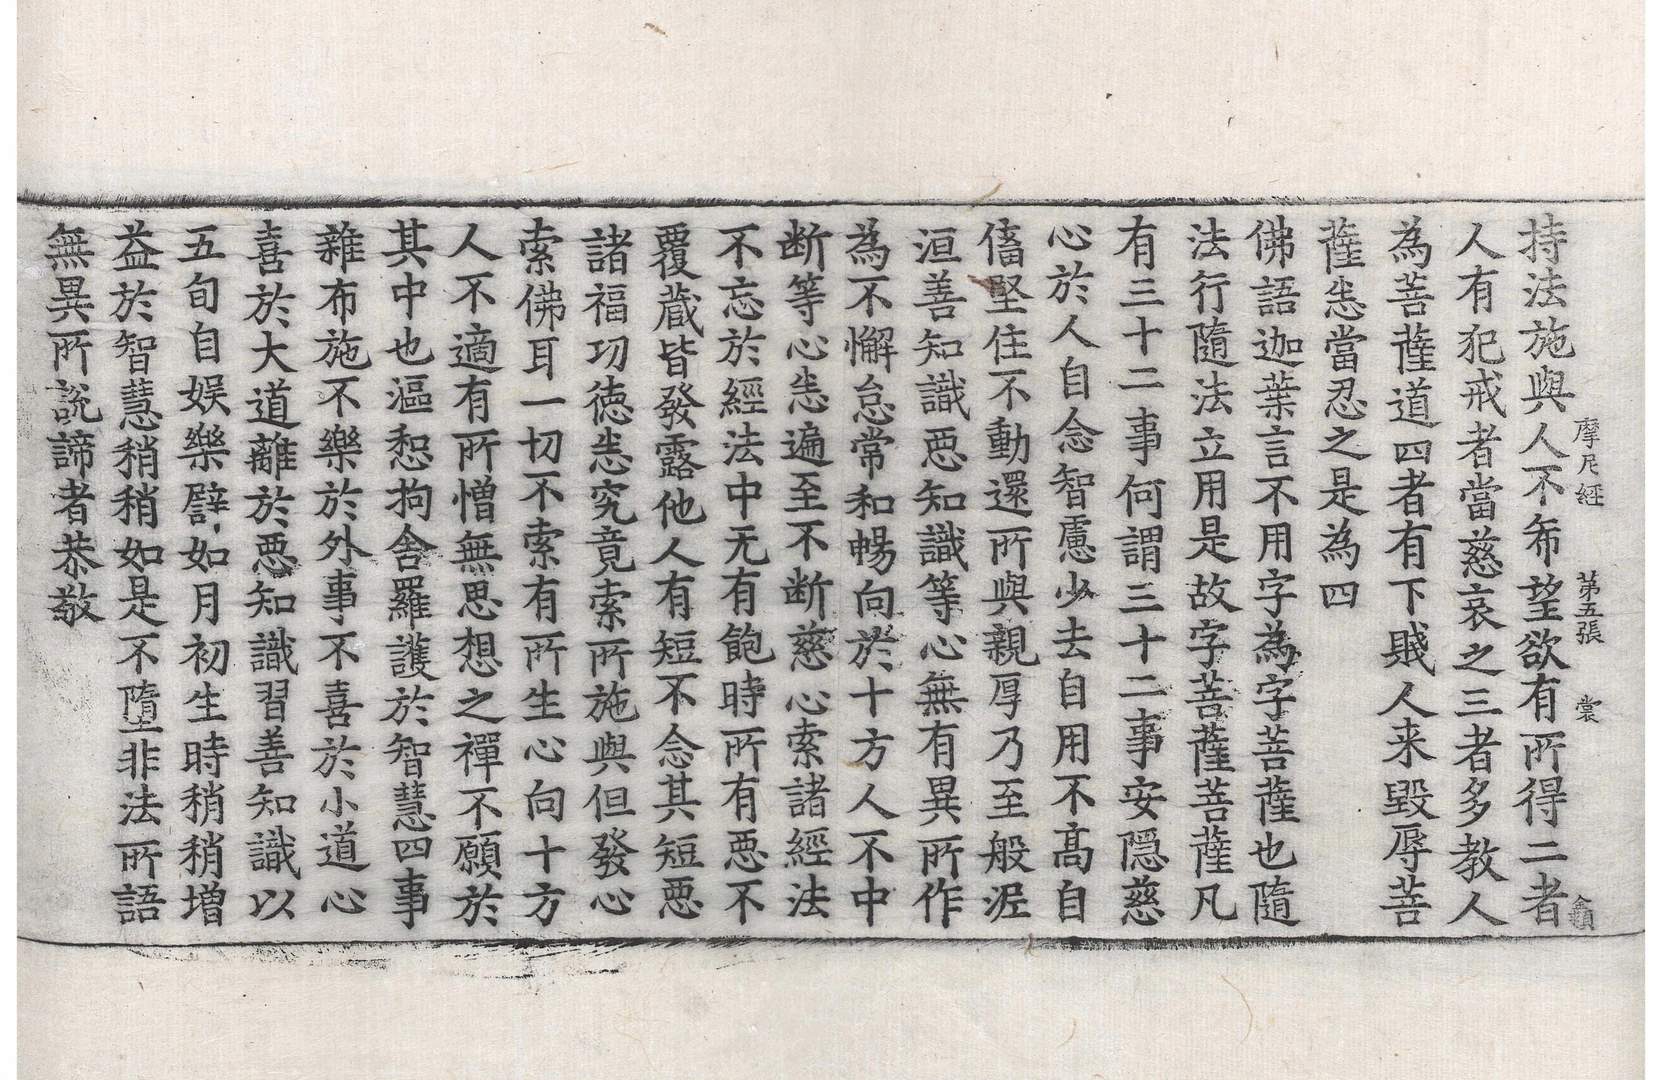 摩尼經 第五張 裳
持法施與人不希望欲有所得二者
人有犯戒者當慈哀之三者多教人
為菩薩道四者有下賤人来毀辱菩
薩悉當忍之是為四
佛語迦葉言不用字為字菩薩也隨
法行隨法立用是故字菩薩菩薩凡
有三十二事何謂三十二事安隱慈
心於人自念智慮少去自用不高自
堅住不動還所與親厚乃至般泥
洹善知識惡知識等心無有異所作
為不懈怠常和暢向於十方人不中
断等心悉遍至不断慈心索諸經法
不忘於經法中无有飽時所有惡不
覆蔵皆發露他人有短不念其短惡
諸福功徳悉究竟索所施與但發心
索佛耳一切不索有所生心向十方
人不適有所憎無思想之禪不願於
其中也漚惒拘舍羅護於智慧四事
雜布施不樂於外事不喜於小道心
喜於大道離於惡知識習善知識以
五旬自娛樂譬如月初生時稍稍增
益於智慧稍稍如是不墮非法所語
無異所說諦者恭敬